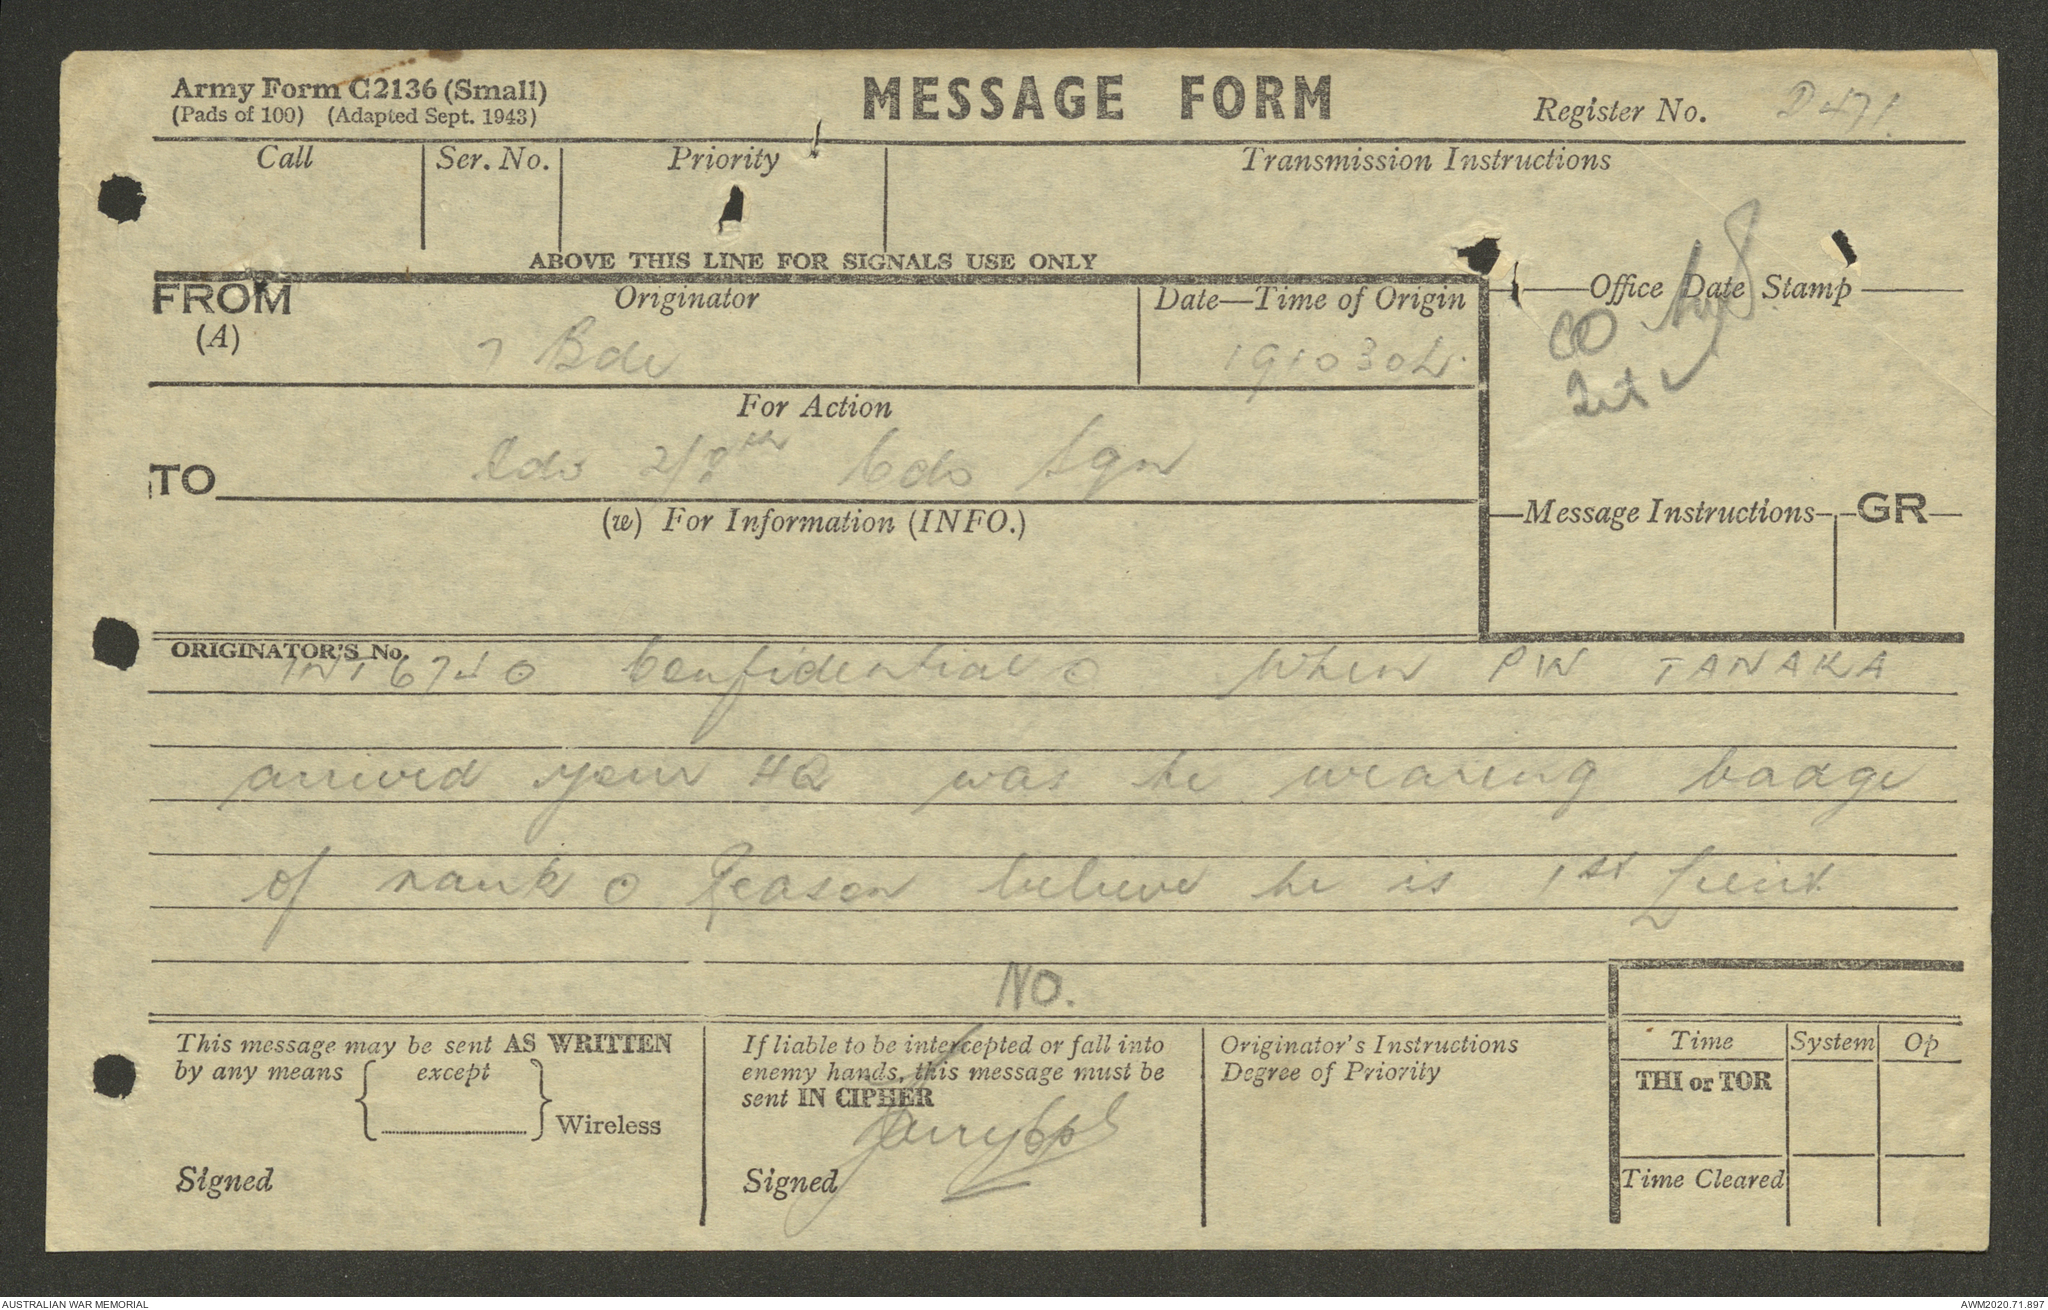 Army Form C2136 (Small)
(Pads of 100) (Adapted Sept. 1943)
MESSAGE FORM
Register No. D471.
Call
Ser. No.
Priority
Transmission Instructions
ABOVE THIS LINE FOR SIGNALS USE ONLY
FROM
(A)
Originator
7 Bde
Date—Time of Origin
191030L.
Office Date Stamp
CO
Int
For Action
TO
2/8th Cdo Sqn
(w) For Information (INFO.)
Message Instructions
GR
ORIGINATOR'S No.
INT6740 Confidential o When PW TANAKA
arrived your HQ was he wearing badge
of rank o Reason believe he is 1st Lieut
NO.
This message may be sent AS WRITTEN
by any means except
Wireless
Signed
If liable to be intercepted or fall into
enemy hands, this message must be
sent IN CIPHER
Signed
Originator's Instructions
Degree of Priority
Time
System
Op
THI or TOR
Time Cleared
AUSTRALIAN WAR MEMORIAL
AWM2020.71.897